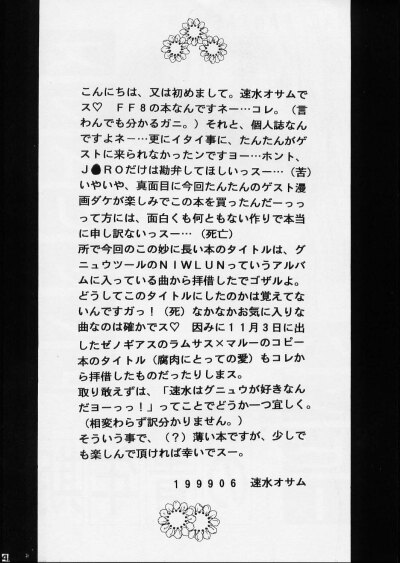 こんにちは、又は初めまして。速水オサムで
ス♡　ＦＦ８の本なんですネー…コレ。（言
わんでも分かるガニ。）それと、個人誌なん
ですよネー…更にイタイ事に、たんたんがゲ
ストに来られなかったンですヨー…ホント、
Ｊ●ＲＯだけは勘弁してほしいっスー…（苦）
いやいや、真面目に今回たんたんのゲスト漫
画ダケが楽しみでこの本を買ったんだーっっ
って方には、面白くも何ともない作りで本当
に申し訳ないっスー…（死亡）
所で今回のこの妙に長い本のタイトルは、グ
ニュウツールのＮＩＷＬＵＮっていうアルバ
ムに入っている曲から拝借したでゴザルよ。
どうしてこのタイトルにしたのかは覚えてな
いんですガっ！（死）なかなかお気に入りな
曲なのは確かでス♡　因みに１１月３日に出
したゼノギアスのラムサス×マルーのコピー
本のタイトル（腐肉にとっての愛）もコレか
ら拝借したものだったりしまス。
取り敢えずは、「速水はグニュウが好きなん
だヨーっっ！」ってことでどうか一つ宜しく。
（相変わらず訳分かりません。）
そういう事で、（？）薄い本ですが、少しで
も楽しんで頂ければ幸いでスー。
１９９９０６　速水オサム